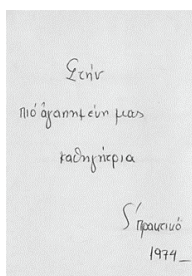 Στήν
πιό ἀγαπημένη μας
καθηγήτρια
Ϛ' πρακτικό
1974